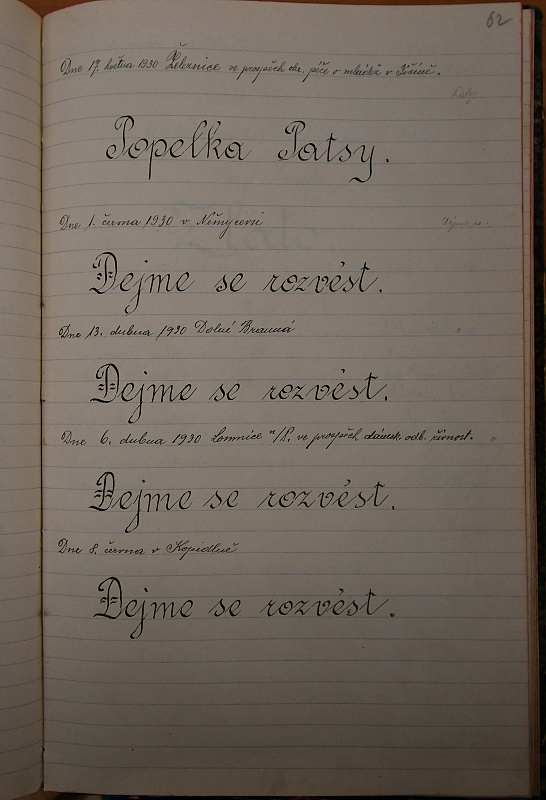 62
Dne 17. května 1930 Železnice ve prospěch okr. péče o mládež v Jičíně.
Popelka Patsy.
Dne 1. června 1930 v Němycevsi
Dejme se
Dejme se rozvést.
Dne 13. dubna 1930 Dolní Branná
"
Dejme se rozvést.
Dne 6. dubna 1930 Lomnice n/P. ve prospěch dámsk. odb. živnost. "
Dejme se rozvést.
Dne 8. června v Kopidlně
Dejme se rozvést.